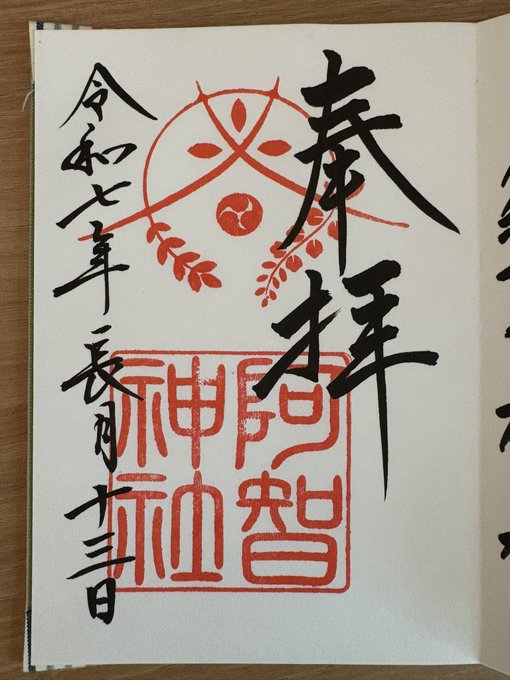 奉拝
阿智
神社
令和七年長月十三日